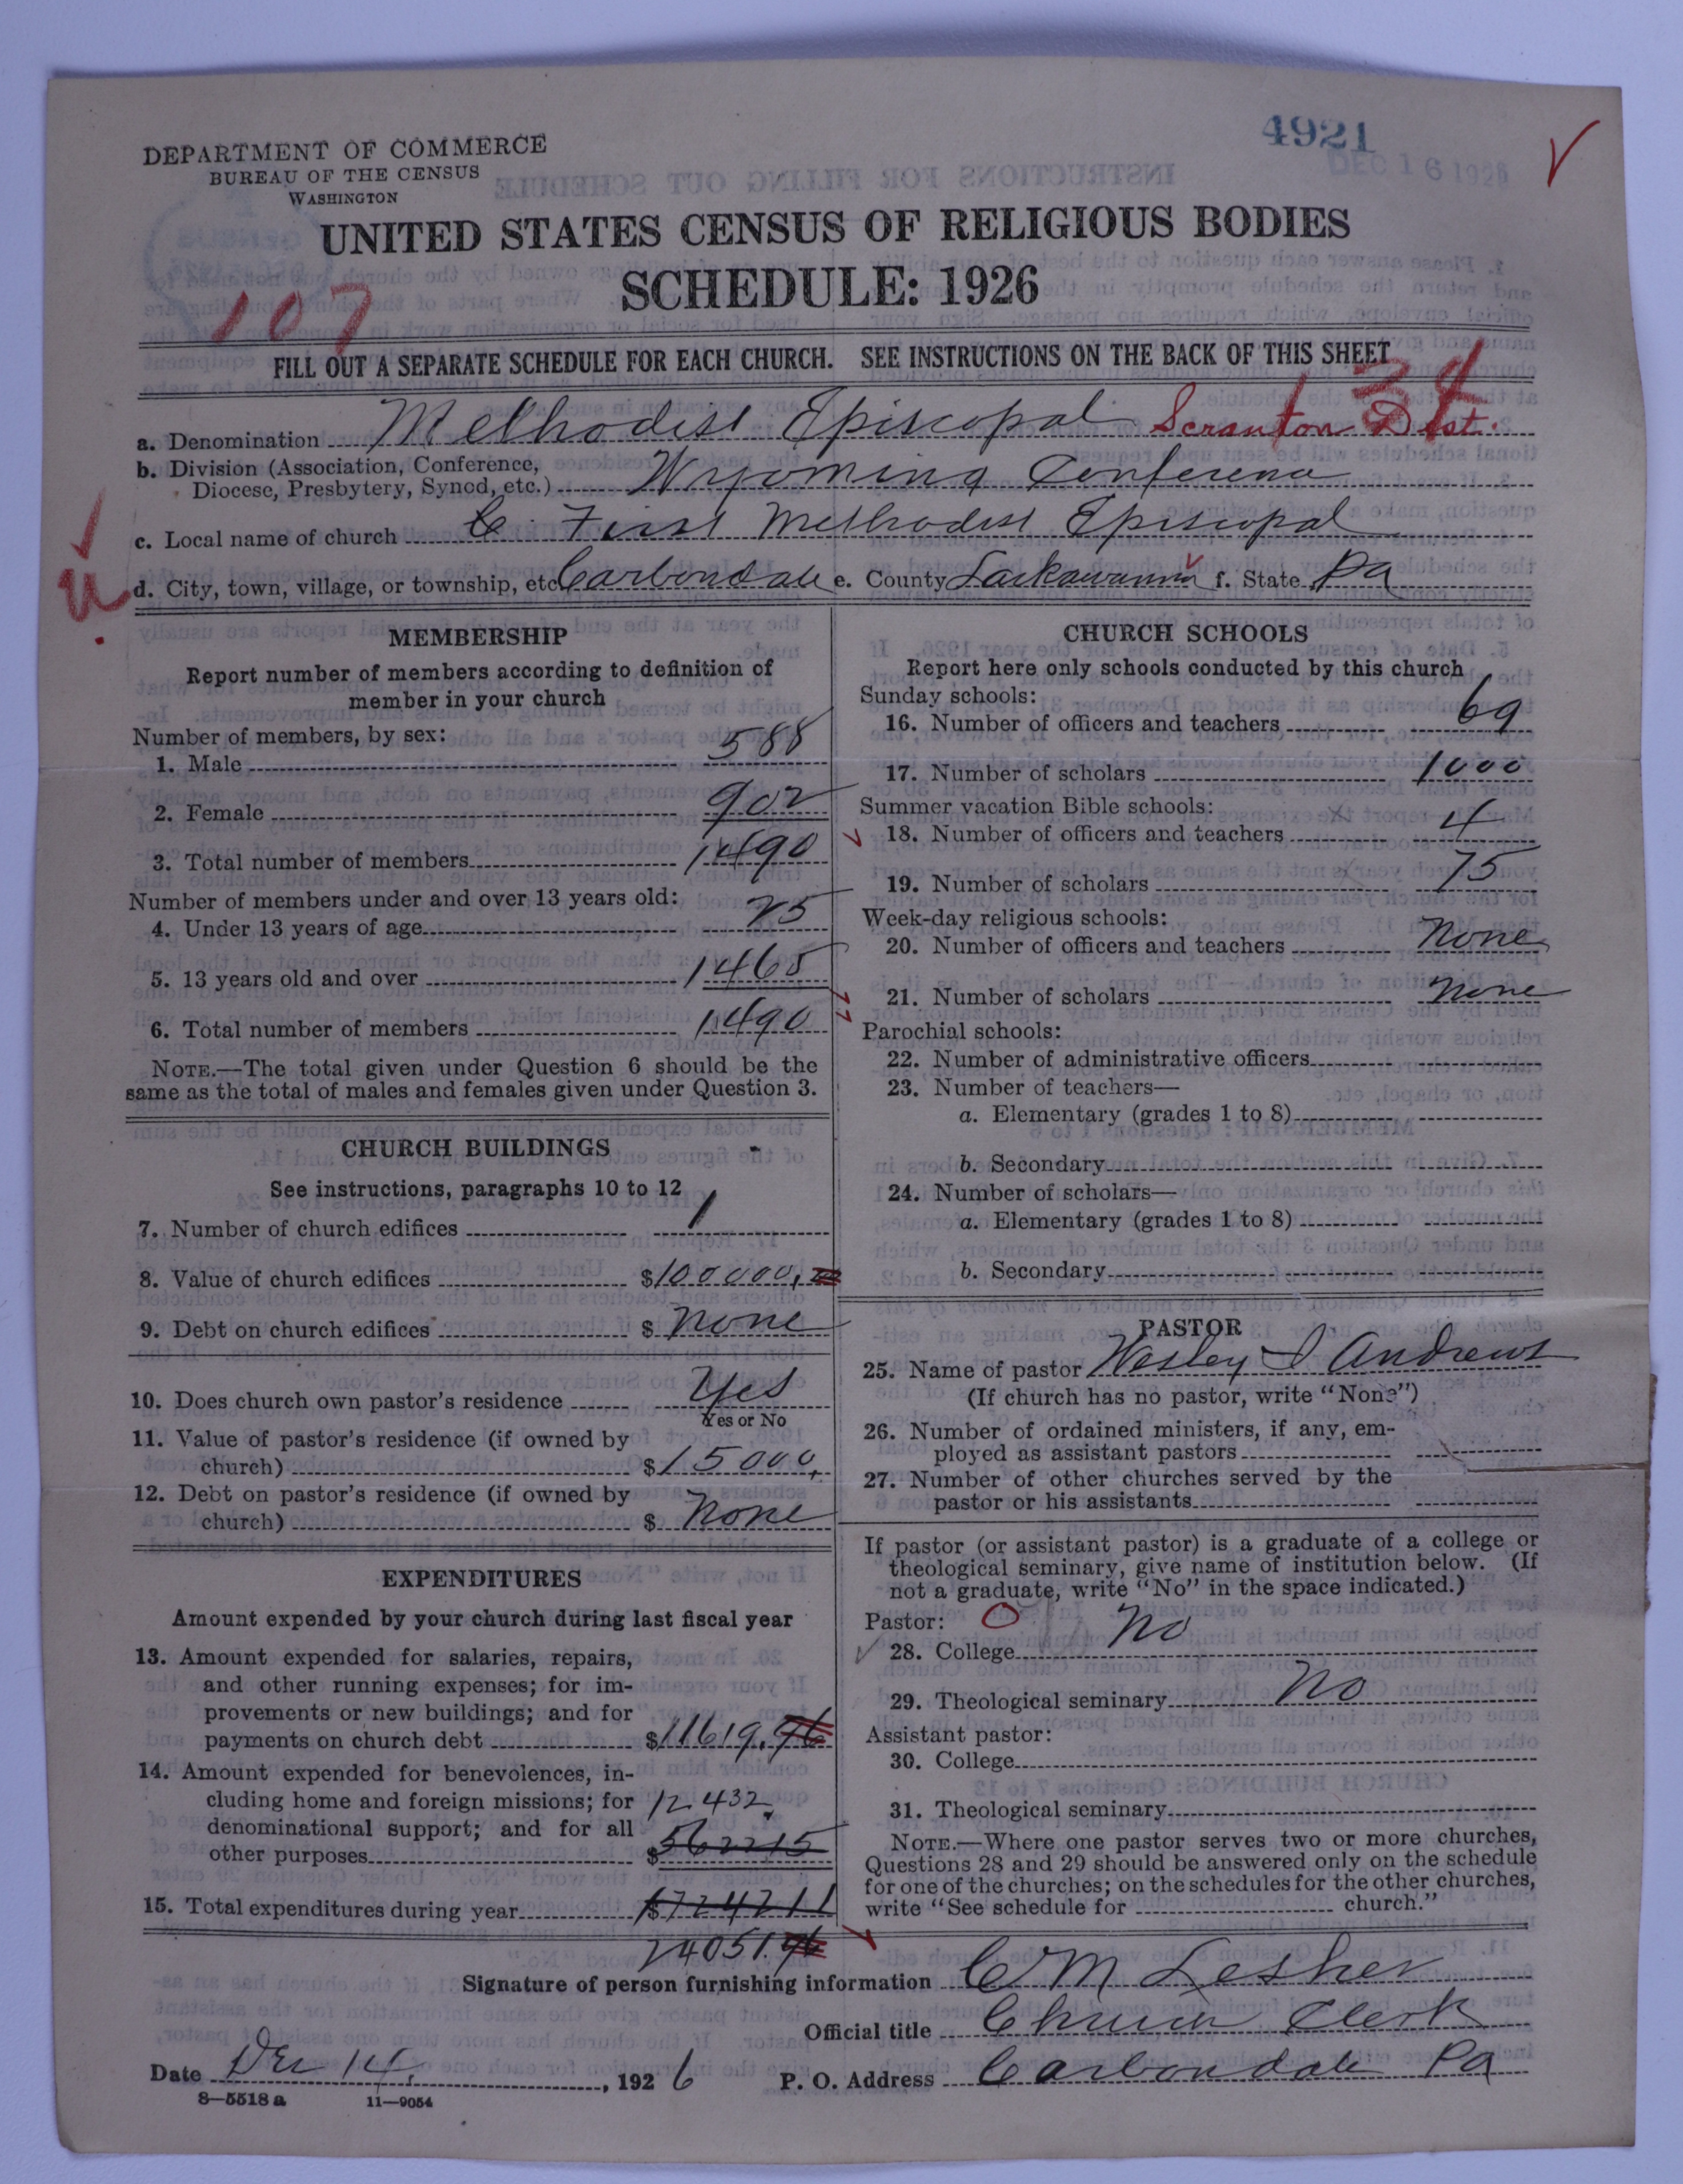 4921
DEC 16 1926
DEPARTMENT OF COMMERCE
BUREAU OF THE CENSUS
WASHINGTON
UNITED STATES CENSUS OF RELIGIOUS BODIES
SCHEDULE: 1926
107
FILL OUT A SEPARATE SCHEDULE FOR EACH CHURCH. SEE INSTRUCTIONS ON THE BACK OF THIS SHEET
34
a. Denomination Methodist Episcopal Scranton Dist.
b. Division (Association, Conference,
Diocese, Presbytery, Synod, etc.) Wyoming Conference
c. Local name of church First Methodist Episcopal
d. City, town, village, or township, etc Carbondale e. County Lackawanna f. State Pa
MEMBERSHIP
Report number of members according to definition of
member in your church
Number of members, by sex:
1. Male 588
2. Female 902
3. Total number of members 1490
Number of members under and over 13 years old:
4. Under 13 years of age 25
5. 13 years old and over 1465
6. Total number of members 1490
NOTE.—The total given under Question 6 should be the
same as the total of males and females given under Question 3.
CHURCH BUILDINGS
See instructions, paragraphs 10 to 12
7. Number of church edifices 1
8. Value of church edifices $100000,
9. Debt on church edifices $ None
10. Does church own pastor's residence Yes
Yes or No
11. Value of pastor's residence (if owned by
church) $15000,
12. Debt on pastor's residence (if owned by
church) $ None
EXPENDITURES
Amount expended by your church during last fiscal year
13. Amount expended for salaries, repairs,
and other running expenses; for im-
provements or new buildings; and for
payments on church debt $11619.96
14. Amount expended for benevolences, in-
cluding home and foreign missions; for 12432.
denominational support; and for all
other purposes $562215
15. Total expenditures during year $1724211
24051.96
CHURCH SCHOOLS
Report here only schools conducted by this church
Sunday schools:
16. Number of officers and teachers 69
17. Number of scholars 1000
Summer vacation Bible schools:
18. Number of officers and teachers 4
19. Number of scholars 75
Week-day religious schools:
20. Number of officers and teachers None
21. Number of scholars None
Parochial schools:
22. Number of administrative officers
23. Number of teachers—
a. Elementary (grades 1 to 8)
b. Secondary
24. Number of scholars—
a. Elementary (grades 1 to 8)
b. Secondary
PASTOR
25. Name of pastor Wesley I Andrews
(If church has no pastor, write "None")
26. Number of ordained ministers, if any, em-
ployed as assistant pastors
27. Number of other churches served by the
pastor or his assistants
If pastor (or assistant pastor) is a graduate of a college or
theological seminary, give name of institution below. (If
not a graduate, write "No" in the space indicated.)
Pastor: 0
28. College No
29. Theological seminary No
Assistant pastor:
30. College
31. Theological seminary
NOTE.—Where one pastor serves two or more churches,
Questions 28 and 29 should be answered only on the schedule
for one of the churches; on the schedules for the other churches,
write "See schedule for church."
Signature of person furnishing information C M Lesher
Official title Church Clerk
Date Dec 14, 1926 P. O. Address Carbondale Pa
8—5518 a 11—9054